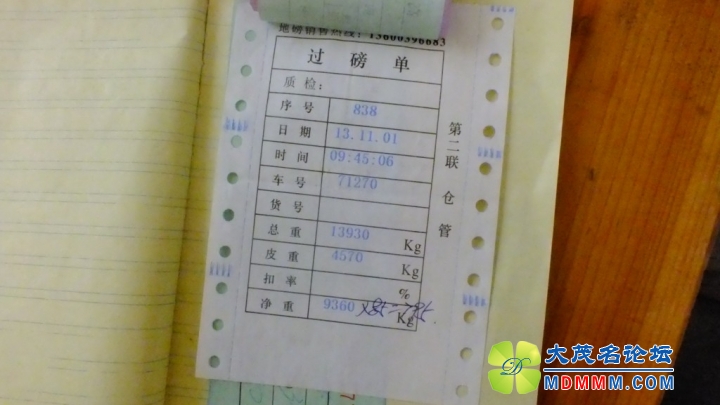 地磅销售热线：13600396683
过磅单
质检：
序号 838
日期 13.11.01
时间 09:45:06
车号 71270
货号
总重 13930 Kg
皮重 4570 Kg
扣率 %
净重 9360 Kg
第二联 仓管
大茂名论坛
MDMMM.COM